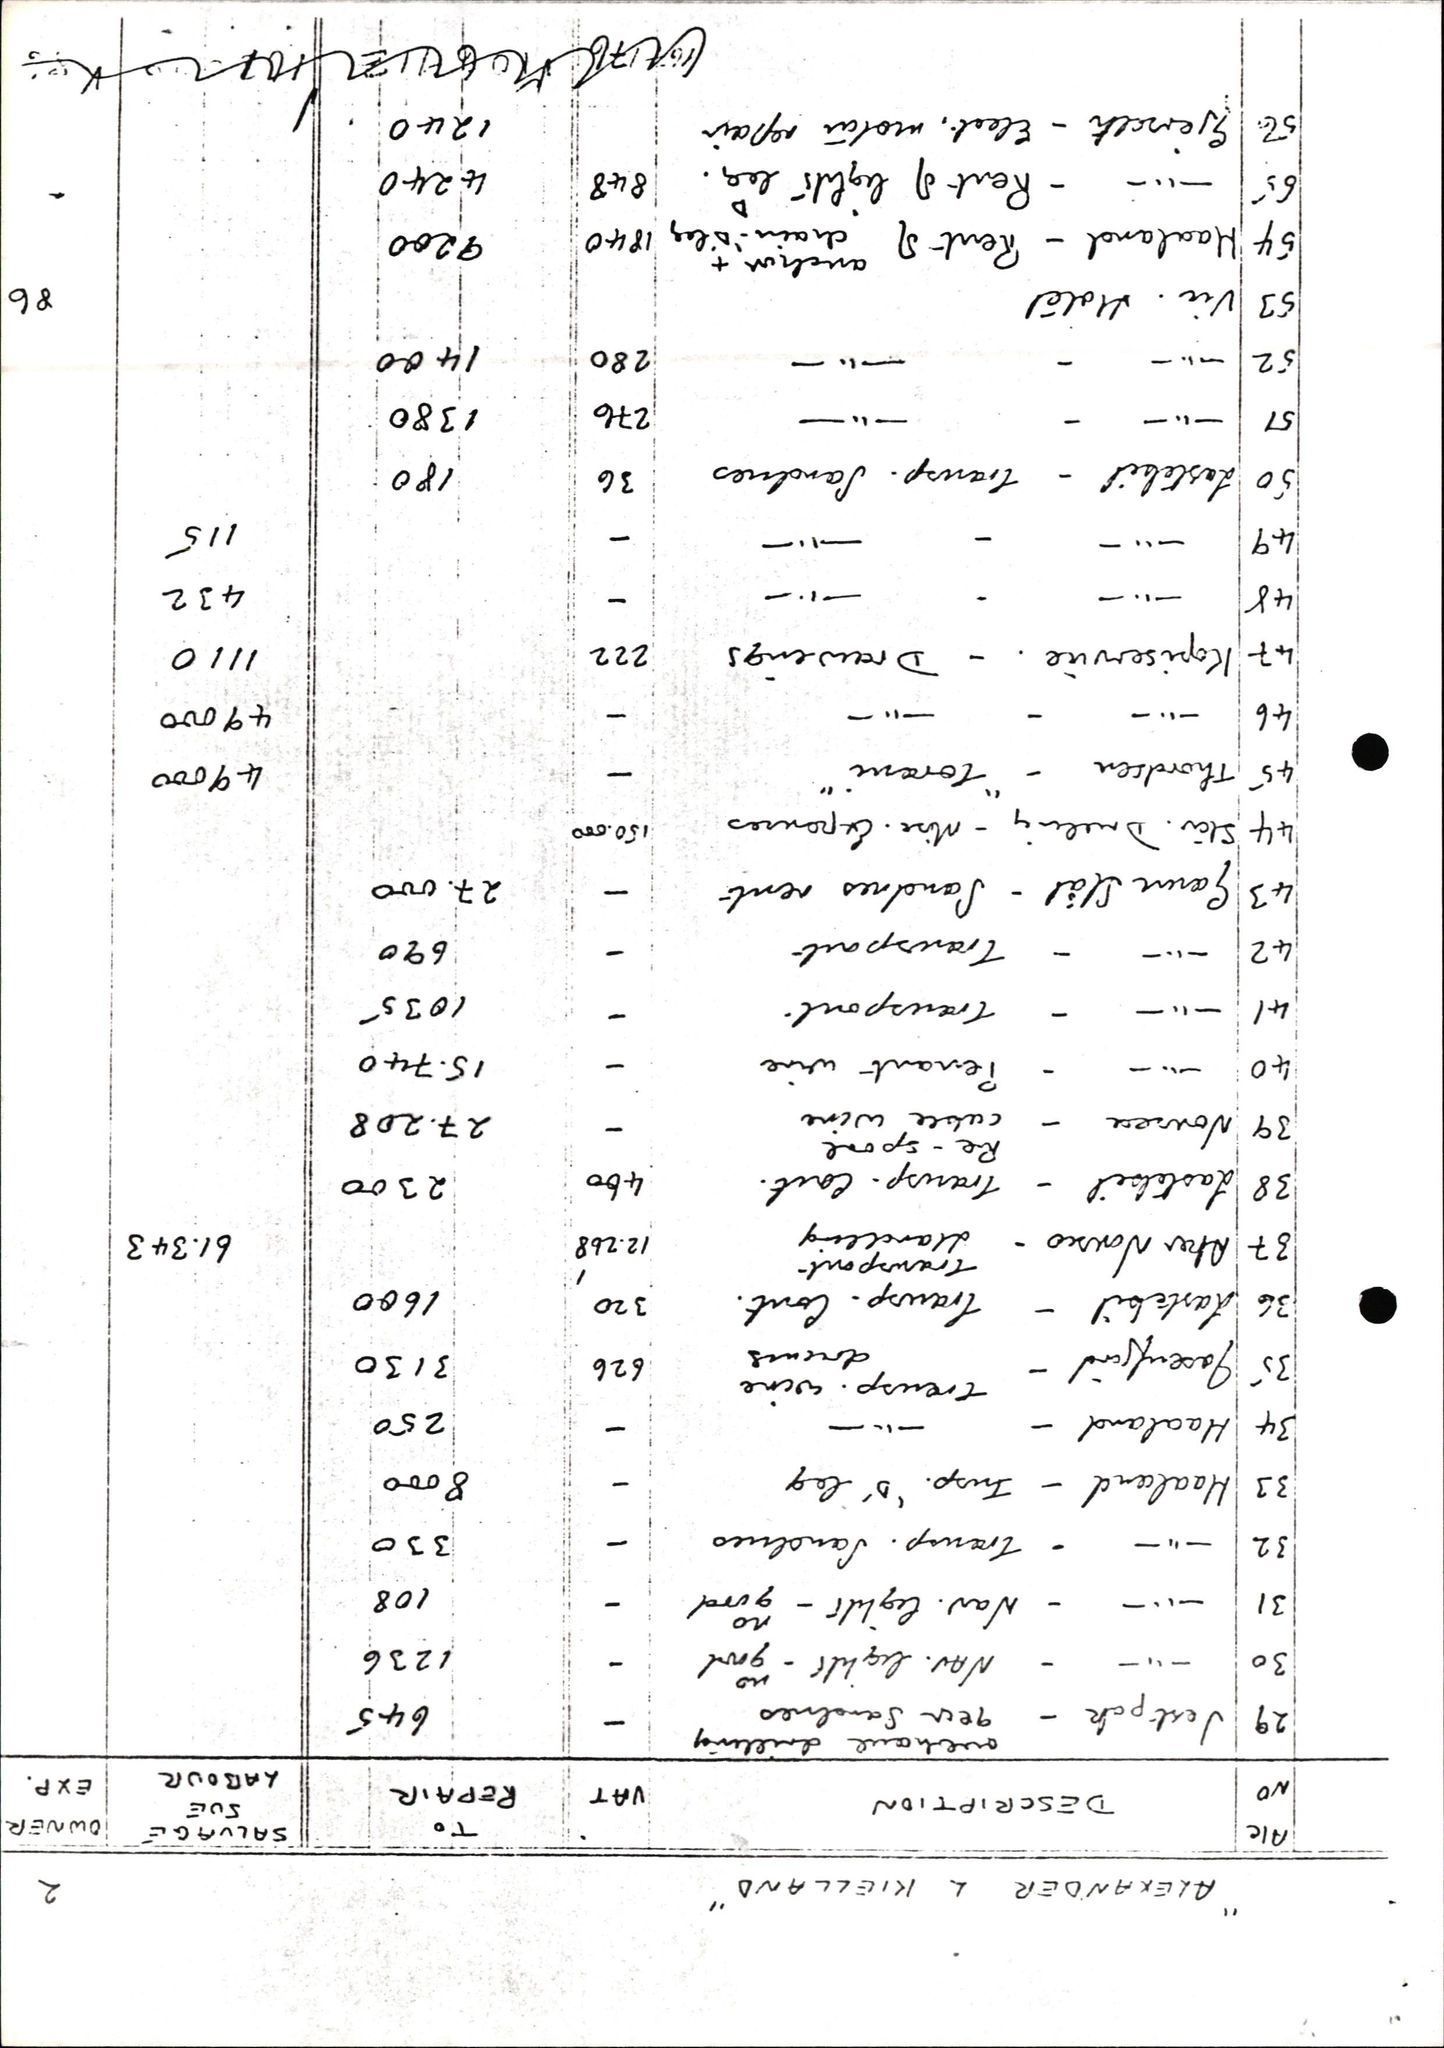 "ALEXANDER L KIELLAND" 2
A/c NO DESCRIPTION VAT TO REPAIR SALVAGE SUE LABOUR OWNER EXP.
29 Jestpak - overhaul drilling gear Sandnes - 645
30 —"— - NAV. light - no good - 1236
31 —"— - Nav. light - no good - 108
32 —"— - Transp. Sandnes - 330
33 Haaland - Insp. 'D' leg - 8000
34 Haaland - —"— - 250
35 Gasenfjord - Transp. wire drums 626 3130
36 Lastebil - Transp. Cont. 320 1600
37 Aker Norsco - Transport Handling 12.268 61.343
38 Lastebil - Transp. Cont. 460 2300
39 Norsea - Re-spool cable wire - 27.208
40 —"— - Penant wire - 15.740
41 —"— - Transport - 1035
42 —"— - Transport - 690
43 Gann Stål - Sandnes rent - 27.000
44 Stav. Drilling - Misc. Expenses 150.000
45 Thordsen - "Toram" - 49000
46 —"— - —"— - 49000
47 Kopiservice. - Drawings 222 1110
48 —"— - —"— - 432
49 —"— - —"— - 115
50 Lastebil - Transp. Sandnes 36 180
51 —"— - —"— 276 1380
52 —"— - —"— 280 1400
53 Vic. Hotel 86
54 Haaland - Rent of anchor + chain - D leg 1840 9200
55 —"— - Rent of lights D leg. 848 4240
56 - Elect. motor repair 1240